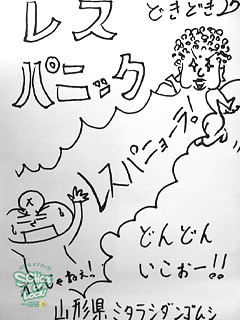 レス
パニック
どきどき
レスパニョーラ!
じゃねぇっ!
どんどん
いこおー!!
山形県 ミタラシダンゴムシ